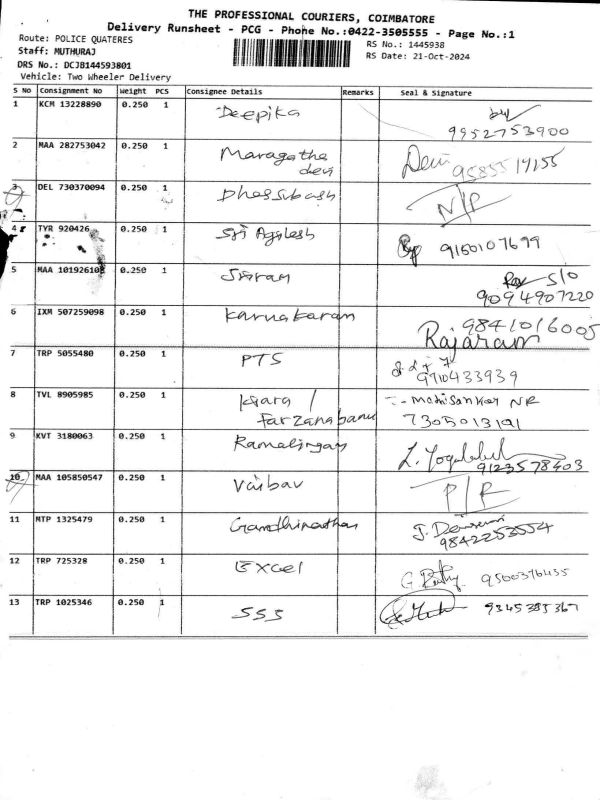 THE PROFESSIONAL COURIERS, COIMBATORE
Delivery Runsheet - PCG - Phone No.:0422-3505555 - Page No.:1
Route: POLICE QUATERES
RS No.: 1445938
Staff: MUTHURAJ
RS Date: 21-Oct-2024
DRS No.: DCJB144593801
Vehicle: Two Wheeler Delivery
S No Consignment No Weight PCS Consignee Details Remarks Seal & Signature
1 KCM 13228890 0.250 1 Deepika
9952753900
2 MAA 282753042 0.250 1 Maragatha devi Devi
3 DEL 730370094 0.250 1 N/R
4 TYR 920426 0.250 1 Sri Agilesh 9150107699
5 MAA 10192610 0.250 1 Sriram S/O
9094907220
6 IXM 507259098 0.250 1 Karunakaran 9841016005
Rajaram
7 TRP 5055480 0.250 1 PTS
9710433939
8 TVL 8905985 0.250 1 Kiara / Farzanabanu
7305013191
9 KVT 3180063 0.250 1 Ramalingam
9123578403
10 MAA 105850547 0.250 1 Vaibav P/R
11 MTP 1325479 0.250 1 Gandhinathan
9842253554
12 TRP 725328 0.250 1 Excel 9500376435
13 TRP 1025346 0.250 1 SSS 9345385367